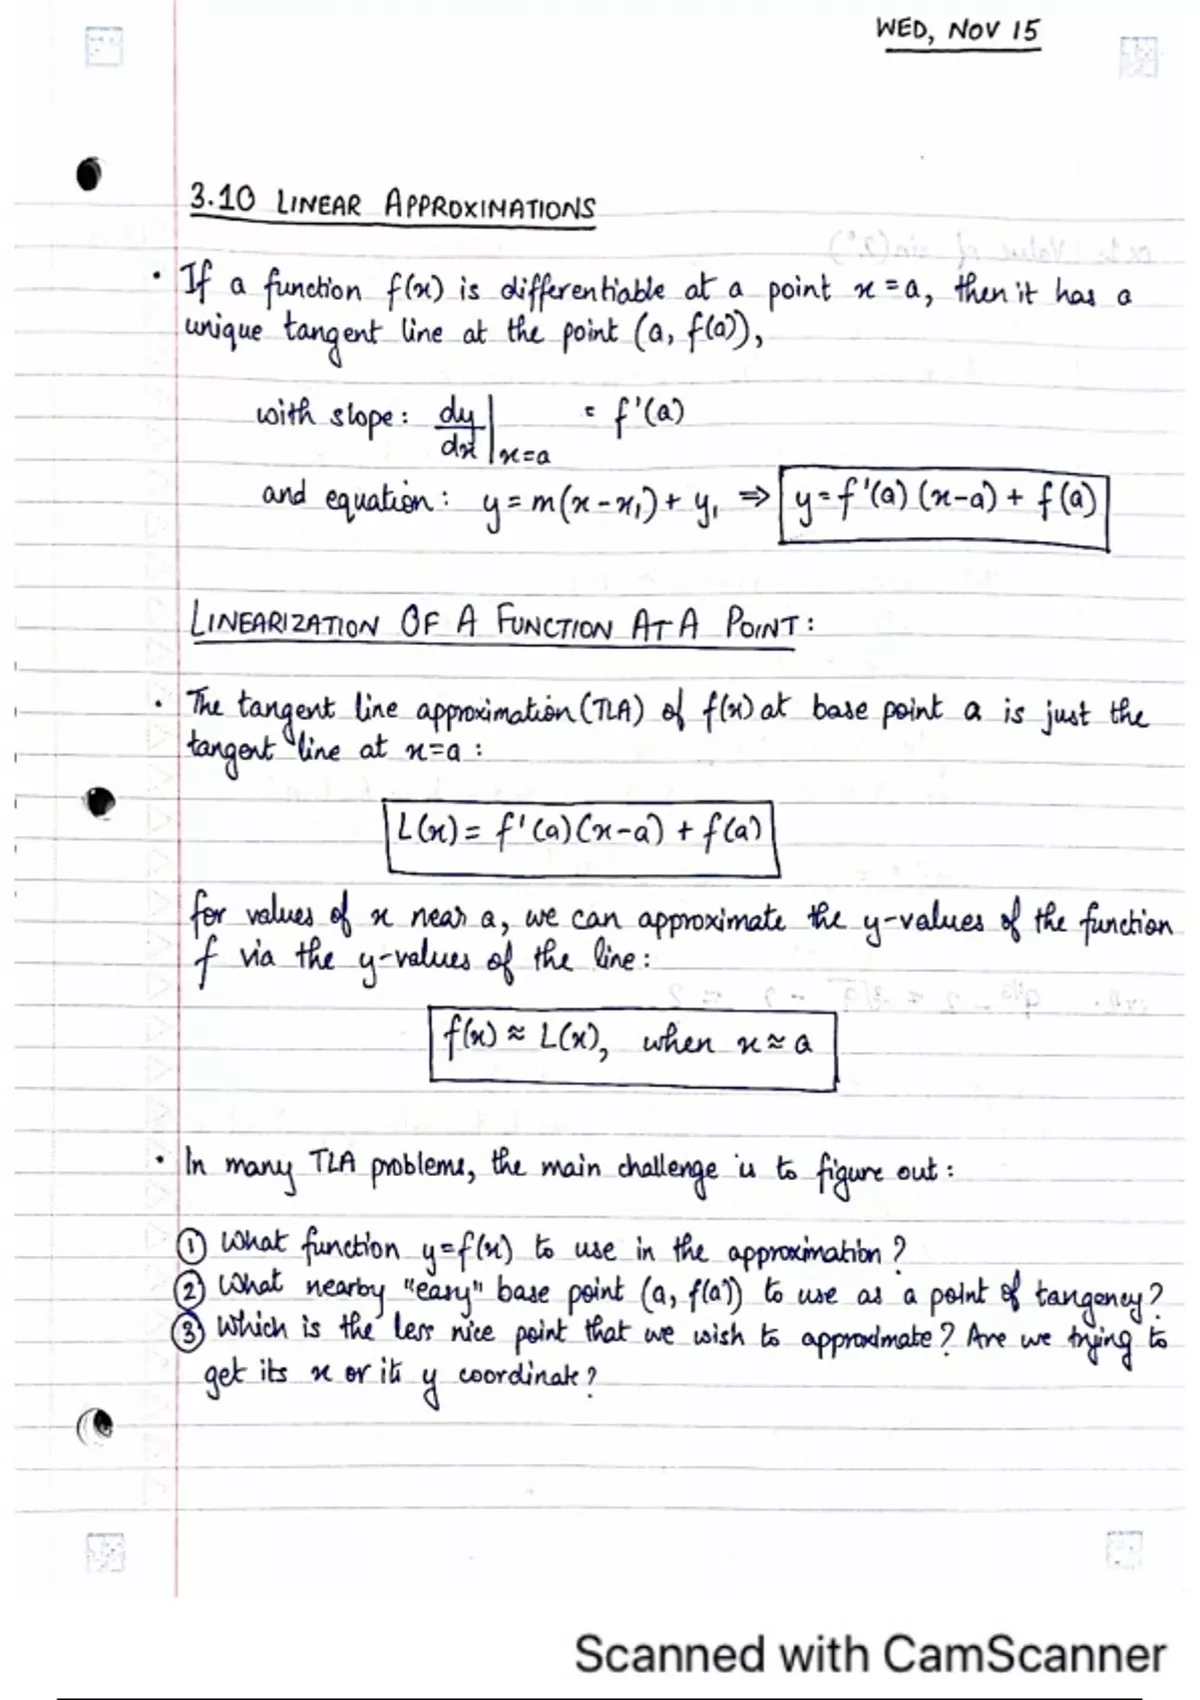 WED, NOV 15
3.10 LINEAR APPROXIMATIONS
• If a function f(x) is differentiable at a point x = a, then it has a
unique tangent line at the point (a, f(a)),
with slope: dy/dx |x=a = f'(a)
and equation: y = m(x - x₁) + y₁ ⇒ y = f'(a) (x-a) + f(a)
LINEARIZATION OF A FUNCTION AT A POINT:
• The tangent line approximation (TLA) of f(x) at base point a is just the
tangent line at x=a :
L(x) = f'(a)(x-a) + f(a)
for values of x near a, we can approximate the y-values of the function
f via the y-values of the line:
f(x) ≈ L(x), when x ≈ a
• In many TLA problems, the main challenge is to figure out:
① What function y=f(x) to use in the approximation?
② What nearby "easy" base point (a, f(a)) to use as a point of tangency?
③ Which is the less nice point that we wish to approximate? Are we trying to
get its x or its y coordinate?
Scanned with CamScanner